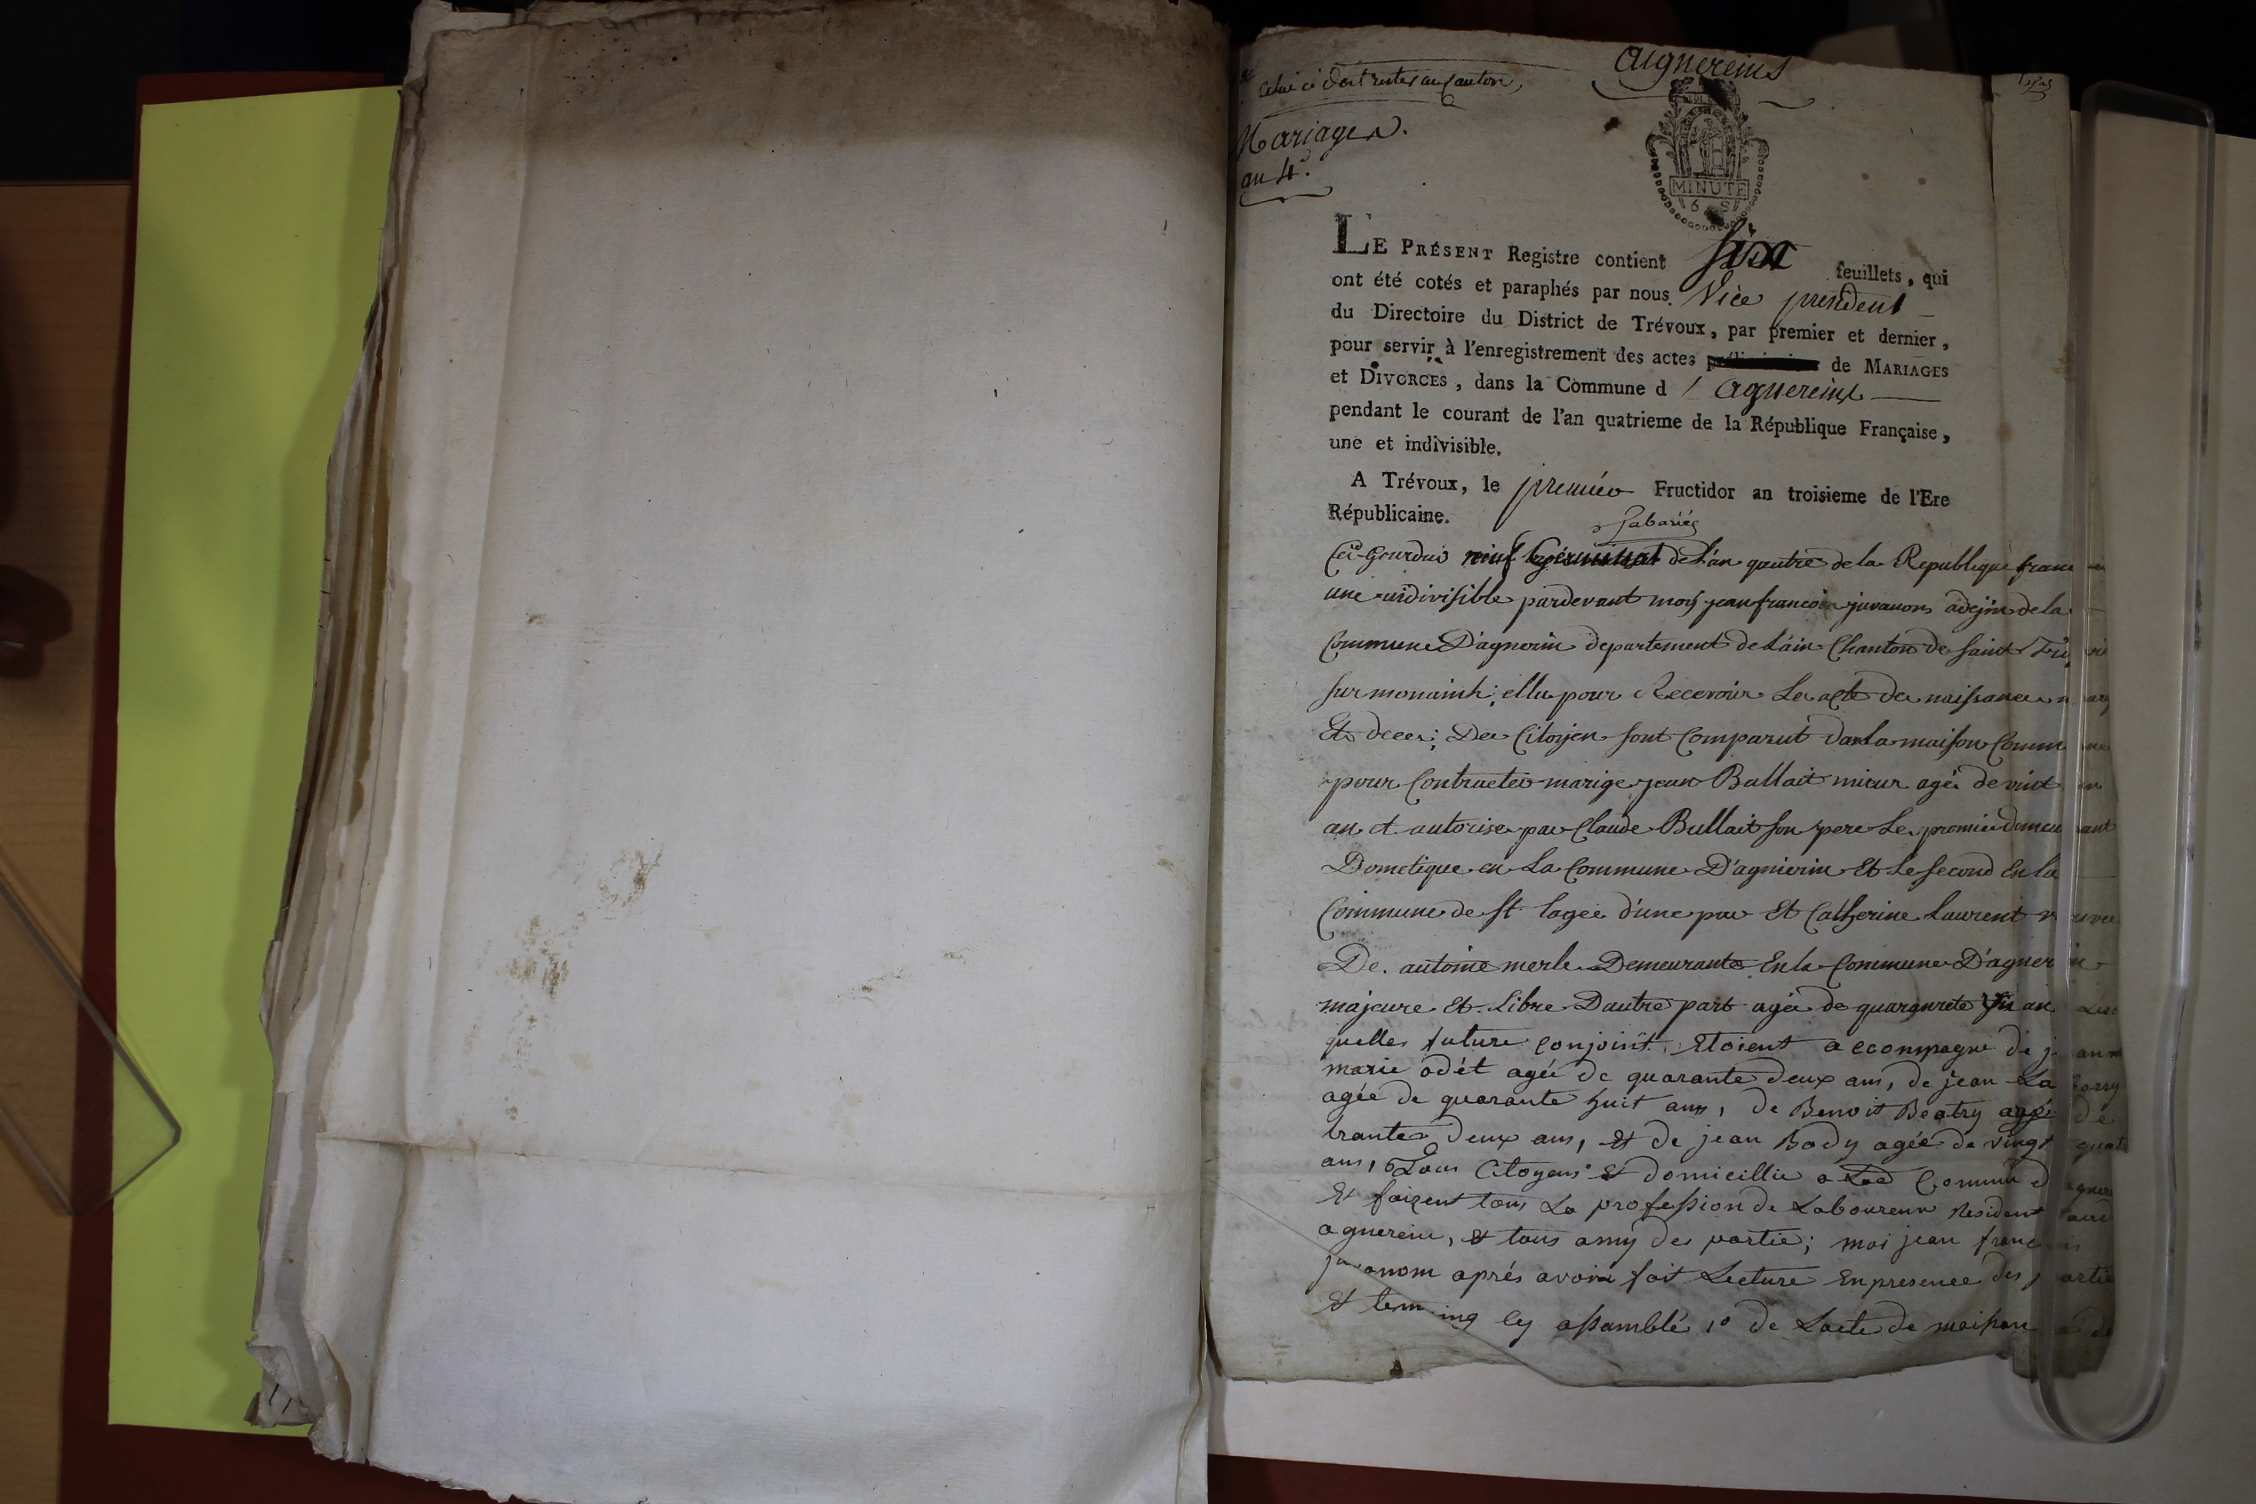 Aignereins
Celui ci doit rester au Canton,
Mariages.
an 4.e
MINUTE
6 S
LE PRÉSENT Registre contient six feuillets, qui
ont été cotés et paraphés par nous Vice president
du Directoire du District de Trévoux, par premier et dernier,
pour servir à l'enregistrement des actes de MARIAGES
et DIVORCES, dans la Commune d'agnereins
pendant le courant de l'an quatrieme de la République Française,
une et indivisible.
A Trévoux, le premier Fructidor an troisieme de l'Ere
Républicaine.
neuf Germinal de l'an quatre de la Republique franc
une indivisible pardevant moy jean francois juvanon adejoin de la
Commune D'agnerin departement de L'ain Chanton de Saint
sur monainh; ellu pour Recevoir Les acte de naissance
Et decer; Des Citoyen sont Comparut dan la maison Comm
pour Contracter marige jean Ballait mieur agée de vint
an et autorise par Claude Bullait son pere Le premier demeurant
Dometique en La Commune D'agnierin Et Le second En la
Commune de st lagée d'une par Et Catherine Laurent
De antoine merle Demeurante En la Commune D'agnerin
majeure Et Libre Dautre part agée de quaranrete an
quelles future conjoint, Etoient acconpagne de
marie odét agée de quarante deux ans, de jean La
agée de quarante huit ans, de Benoit Beatry agée de
trante deux ans, et de jean Body agée de vingt quatr
ans, Tous Citoyens et domicillie a Lad Commune
Et faizent tous La profession de Laboureur Resident
agnereins, et tous amy des partie; moi jean francois
juvanom aprés avoir fait Lecture En presence des partie
Et temoing cy assamblé 1° de Lacte de naissan de